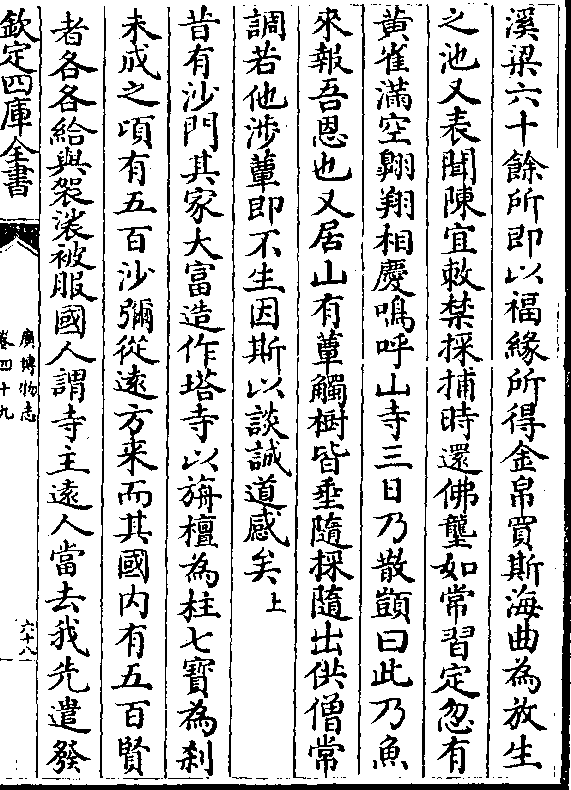 溪梁六十餘所即以福緣所得金帛買斯海曲為放生
之池又表聞陳宣敕禁採捕時還佛壟如常習定忽有
黃雀滿空翺翔相慶鳴呼山寺三日乃散顗曰此乃魚
來報吾恩也又居山有蕈觸樹皆垂隨採隨出供僧常
調若他涉蕈即不生因斯以談誠道感矣上
昔有沙門其家大富造作塔寺以旃檀為柱七寶為刹
未成之頃有五百沙彌從遠方来而其國内有五百賢
者各各給與袈裟被服國人謂寺主遠人當去我先遣發
欽定四庫全書
廣博物志
卷四十九
六十八